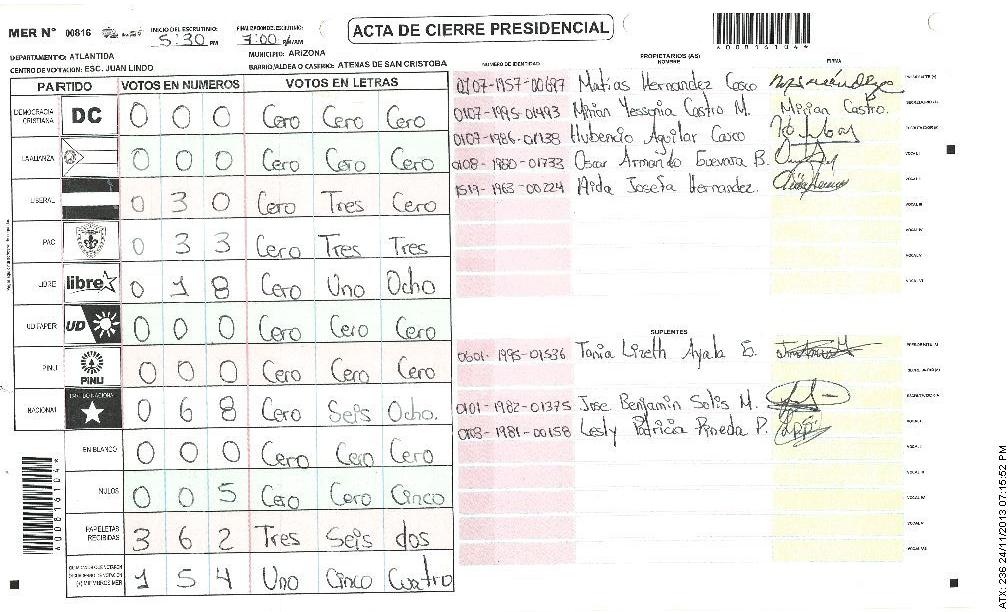 MER Nº 00816
INICIO DEL ESCRUTINIO:
5:30 PM
FINALIZACION DE ESCRUTINIO:
7:00 PM/AM
ACTA DE CIERRE PRESIDENCIAL
*A00816104*
DEPARTAMENTO: ATLANTIDA
MUNICIPIO: ARIZONA
CENTRO DE VOTACION: ESC. JUAN LINDO
BARRIO/ALDEA O CASERIO: ATENAS DE SAN CRISTOBA
PARTIDO VOTOS EN NUMEROS VOTOS EN LETRAS
DEMOCRACIA CRISTIANA DC 0 0 0 Cero Cero Cero
LA ALIANZA 0 0 0 Cero Cero Cero
LIBERAL 0 3 0 Cero Tres Cero
PAC 0 3 3 Cero Tres Tres
LIBRE libre 0 1 8 Cero Uno Ocho
UD FAPER UD 0 0 0 Cero Cero Cero
PINU PINU 0 0 0 Cero Cero Cero
NACIONAL PARTIDO NACIONAL 0 6 8 Cero Seis Ocho.
EN BLANCO 0 0 0 Cero Cero Cero
NULOS 0 0 5 Cero Cero Cinco
PAPELETAS RECIBIDAS 3 6 2 Tres Seis dos
1 5 4 Uno Cinco Cuatro
*A00816104*
NUMERO DE IDENTIDAD
PROPIETARIOS (AS)
NOMBRE
FIRMA
0107-1957-00697 Matias Hernandez Cosco
0107-1995-01493 Mirian Yessenia Castro M. Mirian Castro.
0107-1986-01738 Hubencio Aguilar Cosco
0108-1980-01733 Oscar Armando Guevara B.
1519-1963-00224 Aida Josefa Hernandez.
VOCAL I
VOCAL II
VOCAL III
VOCAL IV
VOCAL V
VOCAL VI
SUPLENTES
0601-1995-01536 Tania Lizeth Ayala E.
0101-1982-01375 Jose Benjamin Solis M.
0103-1981-00158 Lesly Patricia Pineda P.
ATX: 236 24/11/2013 07:15:52 PM